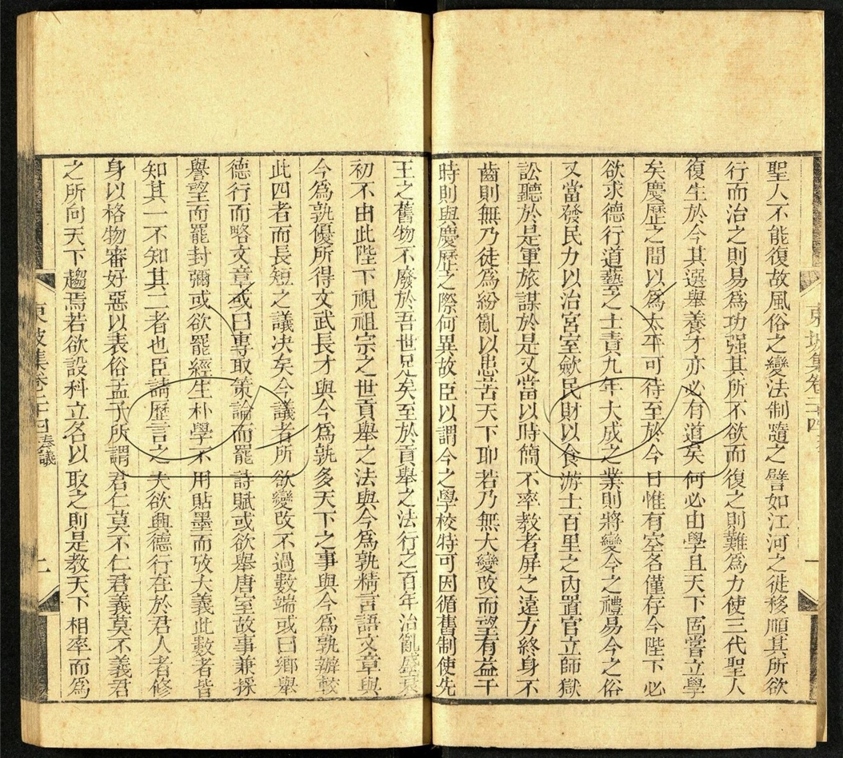 聖人不能復故風俗之變法制隨之譬如江河之徙移順其所欲
行而治之則易爲功强其所不欲而復之則難爲力使三代聖人
復生於今其選舉養才亦必有道矣何必由學且天下固嘗立學
矣慶歷之間以爲太平可待至於今日惟有空名僅存今陛下必
欲求德行道藝之士責九年大成之業則將變今之禮易今之俗
又當發民力以治宮室歛民財以食游士百里之內置官立師獄
訟聽於是軍旅謀於是又當以時簡不率教者屏之遠方終身不
齒則無乃徒爲紛亂以患苦天下耶若乃無大變改而望有益于
時則與慶歷之際何異故臣以謂今之學校特可因循舊制使先
王之舊物不廢於吾世足矣至於貢舉之法行之百年治亂盛衰
初不由此陛下視祖宗之世貢舉之法與今爲孰精言語文章與
今爲孰優所得文武長才與今爲孰多天下之事與今爲孰辦較
此四者而長短之議決矣今議者所欲變改不過數端或曰鄉舉
德行而略文章或曰專取策論而罷詩賦或欲舉唐室故事兼採
譽望而罷封彌或欲罷經生朴學不用貼墨而攷大義此數者皆
知其一不知其二者也臣請歷言之夫欲興德行在於君人者修
身以格物審好惡以表俗孟子所謂君仁莫不仁君義莫不義君
之所向天下趨焉若欲設科立名以取之則是教天下相率而爲
東坡集卷二十四 奏議 二